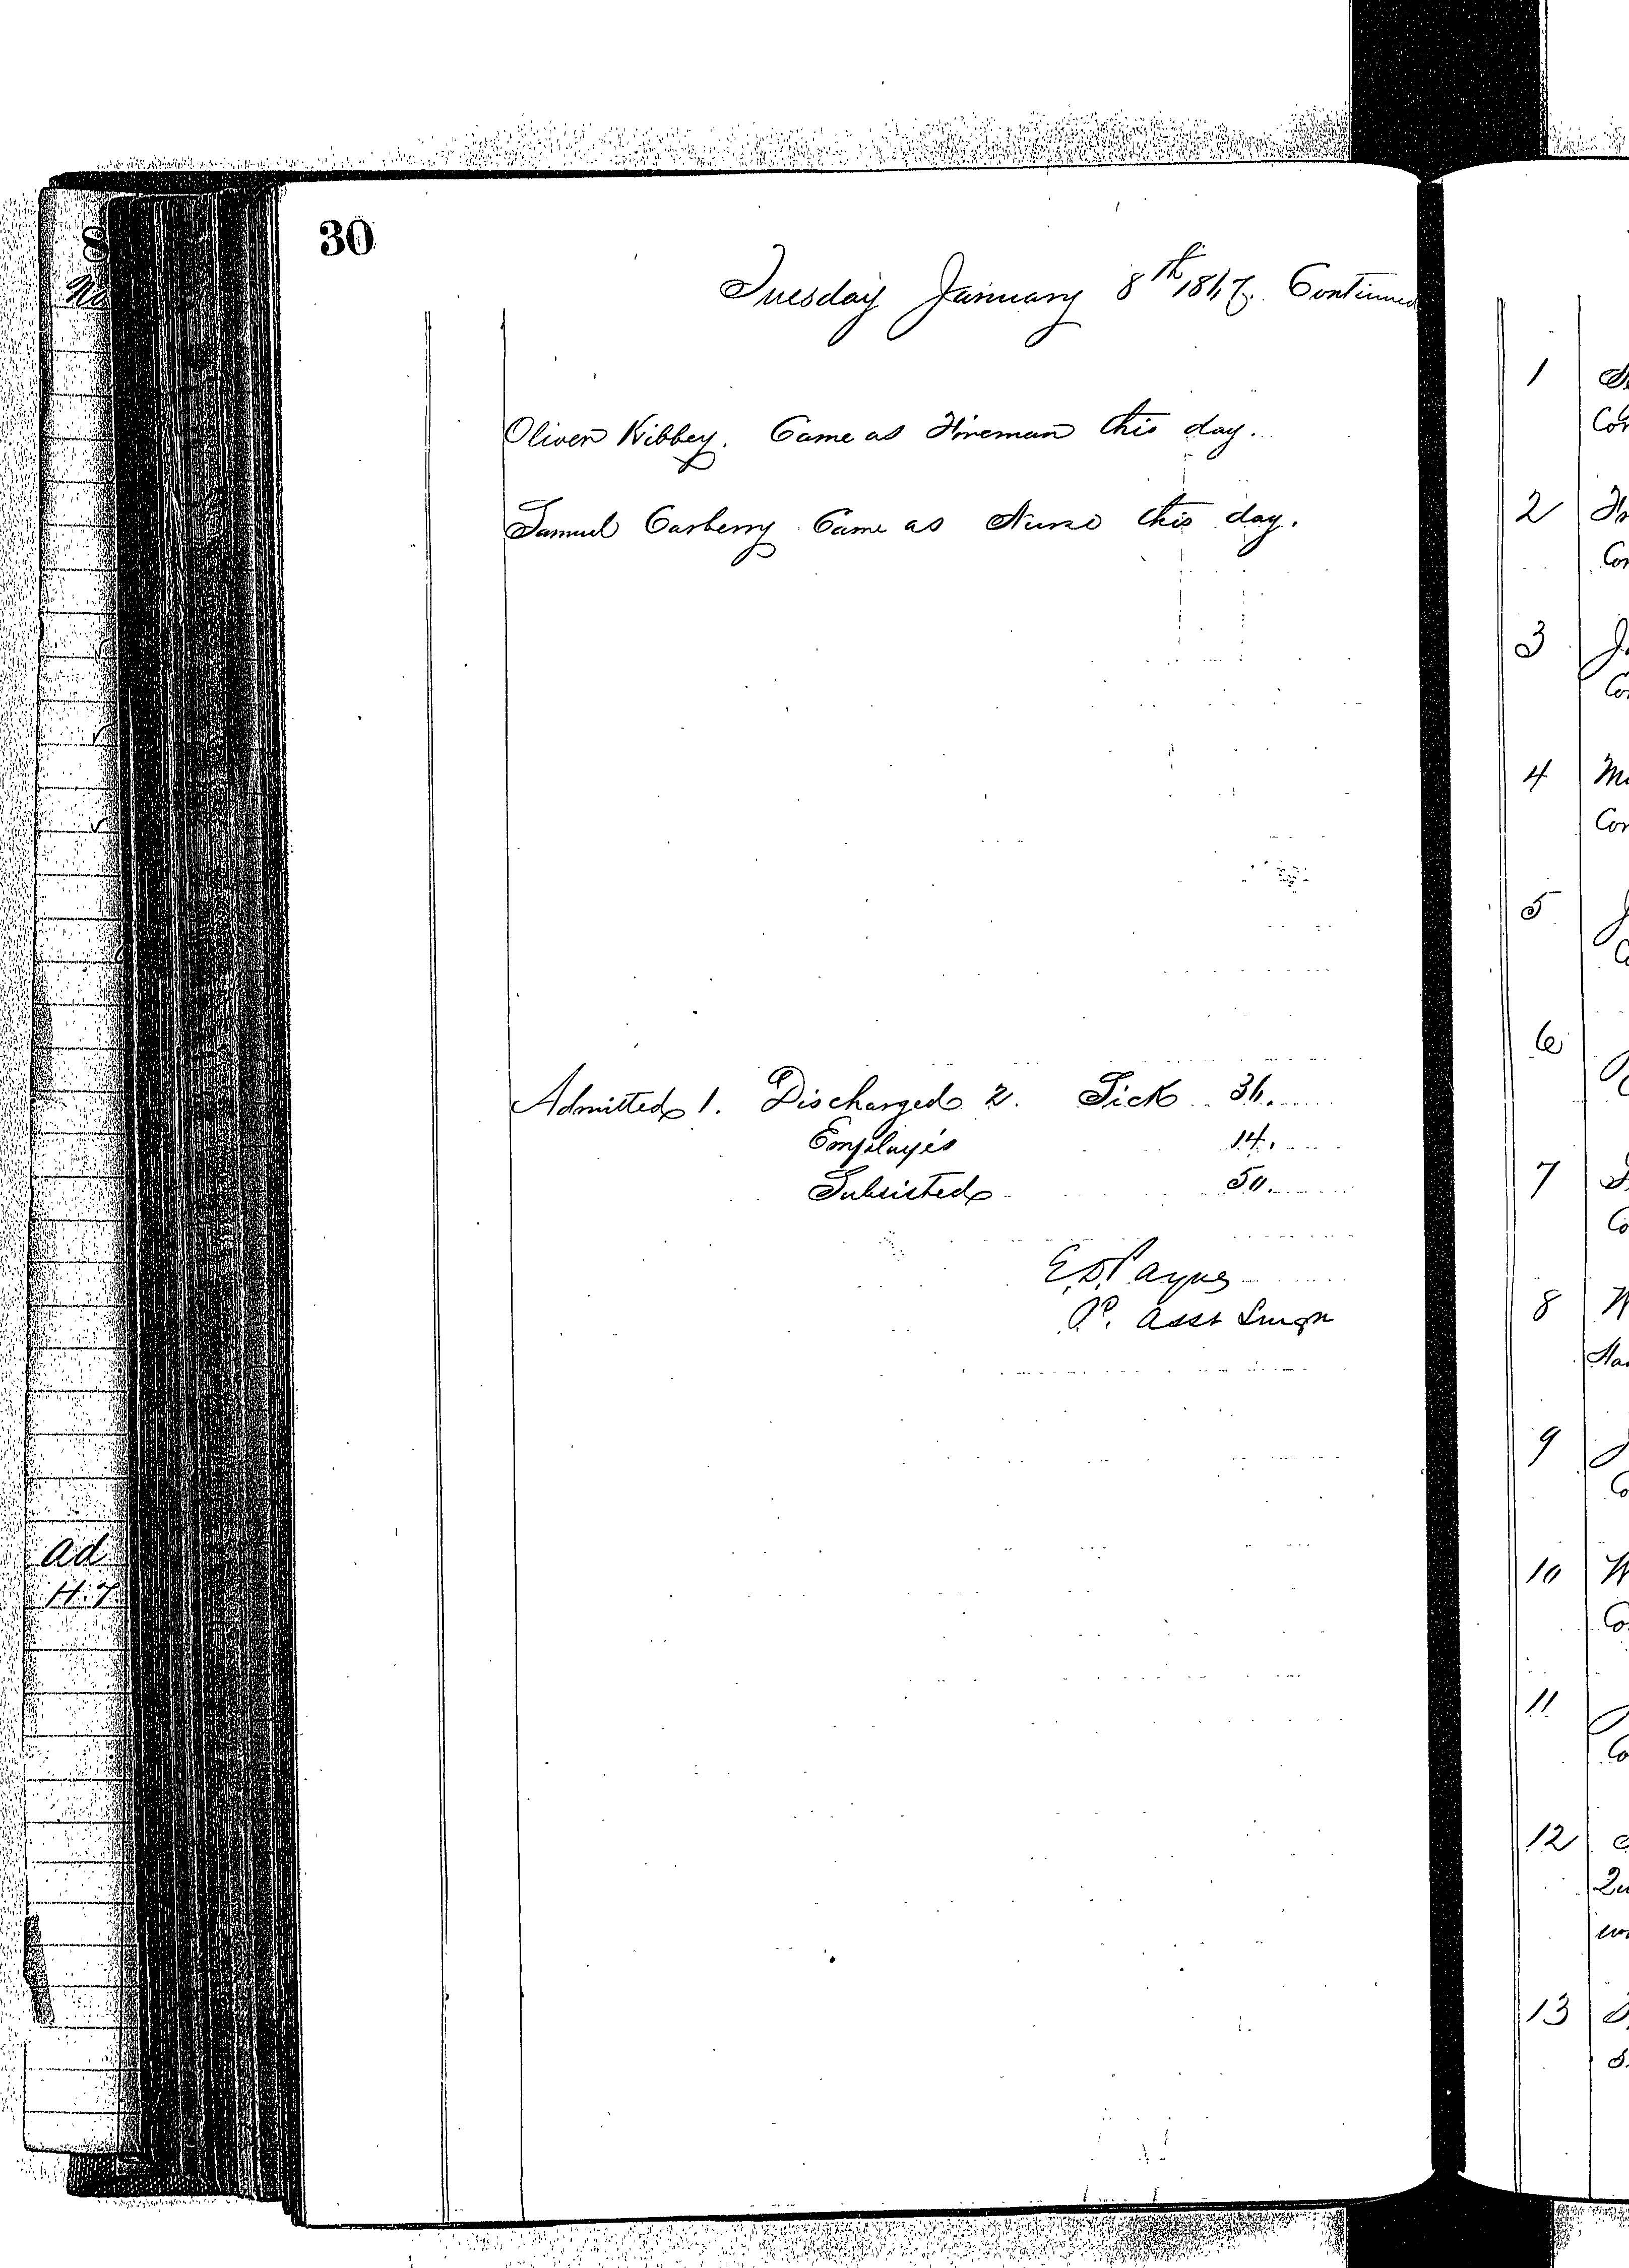 30
Tuesday January 8th 1867. Continued
Oliver Kibbey. Came as Fireman this day.
Samuel Carberry. Came as Nurse this day.
Admitted 1. Discharged 2. Sick 36.
Employés 14.
Subsisted 50.
E.D. Payne
P. Asst Surgn
8
No
ad
H.7.
1
Con
2
Con
3
Co
4
Con
5
Co
6
7
Co
8
Ha
9
Co
10
Co
11
Co
12
13